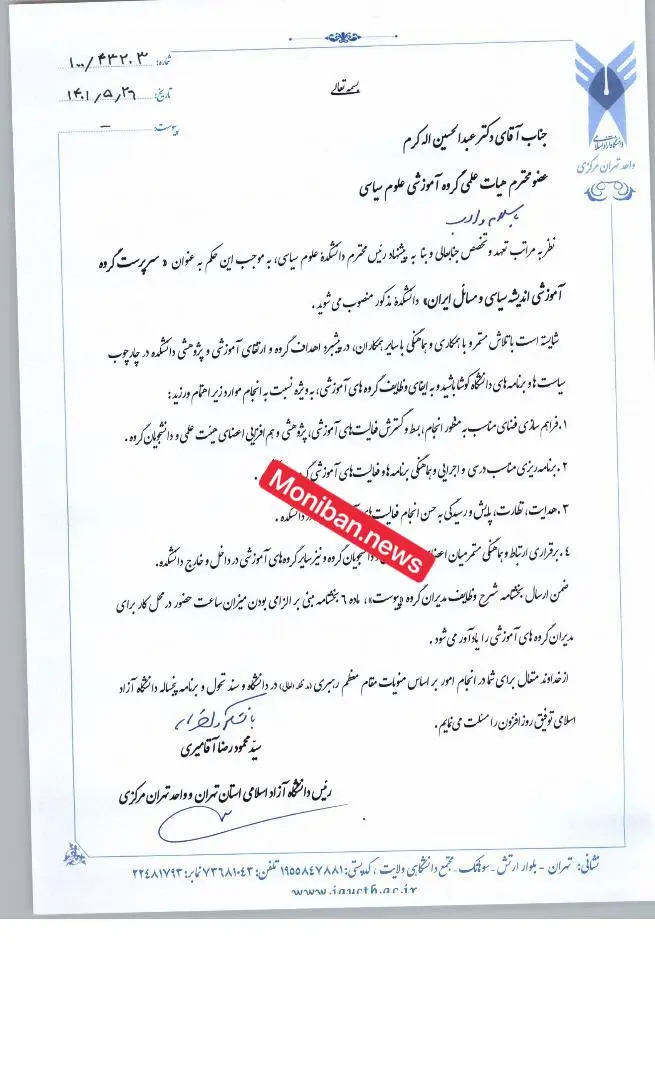 شماره: ۱۰۰/۴۳۲۰۳
تاریخ: ۱۴۰۱/۵/۲۶
پیوست: —
بسمه تعالی
دانشگاه آزاد اسلامی
واحد تهران مرکزی
جناب آقای دکتر عبدالحسین اله کرم
عضو محترم هیات علمی گروه آموزشی علوم سیاسی
با سلام و ادب
نظر به مراتب تعهد و تخصص جنابعالی و بنا به پیشنهاد رئیس محترم دانشکدۀ علوم سیاسی، به موجب این حکم به عنوان « سرپرست گروه
آموزشی اندیشه سیاسی و مسائل ایران» دانشکدۀ مذکور منصوب می شوید .
شایسته است با تلاش مستمر و با همکاری و هماهنگی با سایر همکاران، در پیشبرد اهداف گروه و ارتقای آموزشی و پژوهشی دانشکده در چارچوب
سیاست ها و برنامه های دانشگاه کوشا باشید و به ایفای وظایف گروه های آموزشی، به ویژه نسبت به انجام موارد زیر اهتمام ورزید:
۱. فراهم سازی فضای مناسب به منظور انجام، بسط و گسترش فعالیت های آموزشی، پژوهشی و هم افزایی اعضای هیئت علمی و دانشجویان گروه .
۲. برنامه ریزی مناسب درسی و اجرایی و هماهنگی برنامه ها و فعالیت های آموزشی
۳. هدایت، نظارت، پایش و رسیدگی به حسن انجام فعالیت های دانشکده .
۴. برقراری ارتباط و هماهنگی مستمر میان اعضای دانشجویان گروه و نیز سایر گروه های آموزشی در داخل و خارج دانشکده.
Moniban.news
ضمن ارسال بخشنامه شرح وظایف مدیران گروه «پیوست»، ماده ۶ بخشنامه مبنی بر الزامی بودن میزان ساعت حضور در محل کار برای
مدیران گروه های آموزشی را یادآور می شود .
از خداوند متعال برای شما در انجام امور بر اساس منویات مقام معظم رهبری (مد ظله العالی) در دانشگاه و سند تحول و برنامه پنجساله دانشگاه آزاد
اسلامی توفیق روز افزون را مسئلت می نمایم .
سیّد محمود رضا آقامیری
رئیس دانشگاه آزاد اسلامی استان تهران و واحد تهران مرکزی
نشانی: تهران - بلوار ارتش - سوهانک - مجتمع دانشگاهی ولایت ، کدپستی: ۱۹۵۵۸۴۷۸۸۱ تلفن: ۷۳۶۸۱۰۴۳ نمابر: ۲۲۴۸۱۷۹۳
www.iauctb.ac.ir